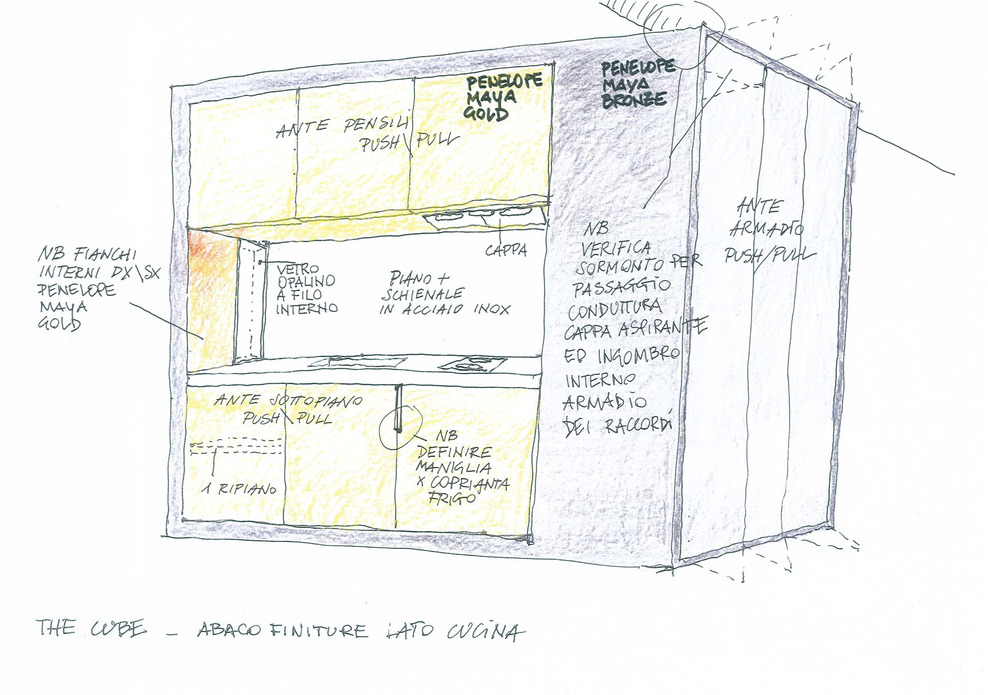 PENELOPE
MAYA
GOLD
PENELOPE
MAYA
BRONZE
ANTE PENSILI
PUSH\PULL
NB FIANCHI
INTERNI DX\SX
PENELOPE
MAYA
GOLD
VETRO
OPALINO
A FILO
INTERNO
PIANO +
SCHIENALE
IN ACCIAIO INOX
CAPPA
NB
VERIFICA
SORMONTO PER
PASSAGGIO
CONDUTTURA
CAPPA ASPIRANTE
ED INGOMBRO
INTERNO
ARMADIO
DEI RACCORDI
ANTE
ARMADIO
PUSH/PULL
ANTE SOTTOPIANO
PUSH\PULL
1 RIPIANO
NB
DEFINIRE
MANIGLIA
X COPRIANTA
FRIGO
THE CUBE - ABACO FINITURE LATO CUCINA